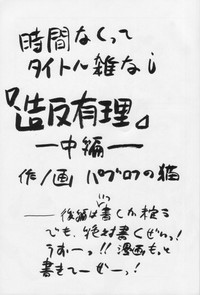 時間なくって
タイトル雑なし
『造反有理』
―中編―
作/画 パブロフの猫
――後編はいつ書くか控う
でも、絶対書くぜぃっ!
うおーっ!!漫画もっと
書きてーぜーっ!